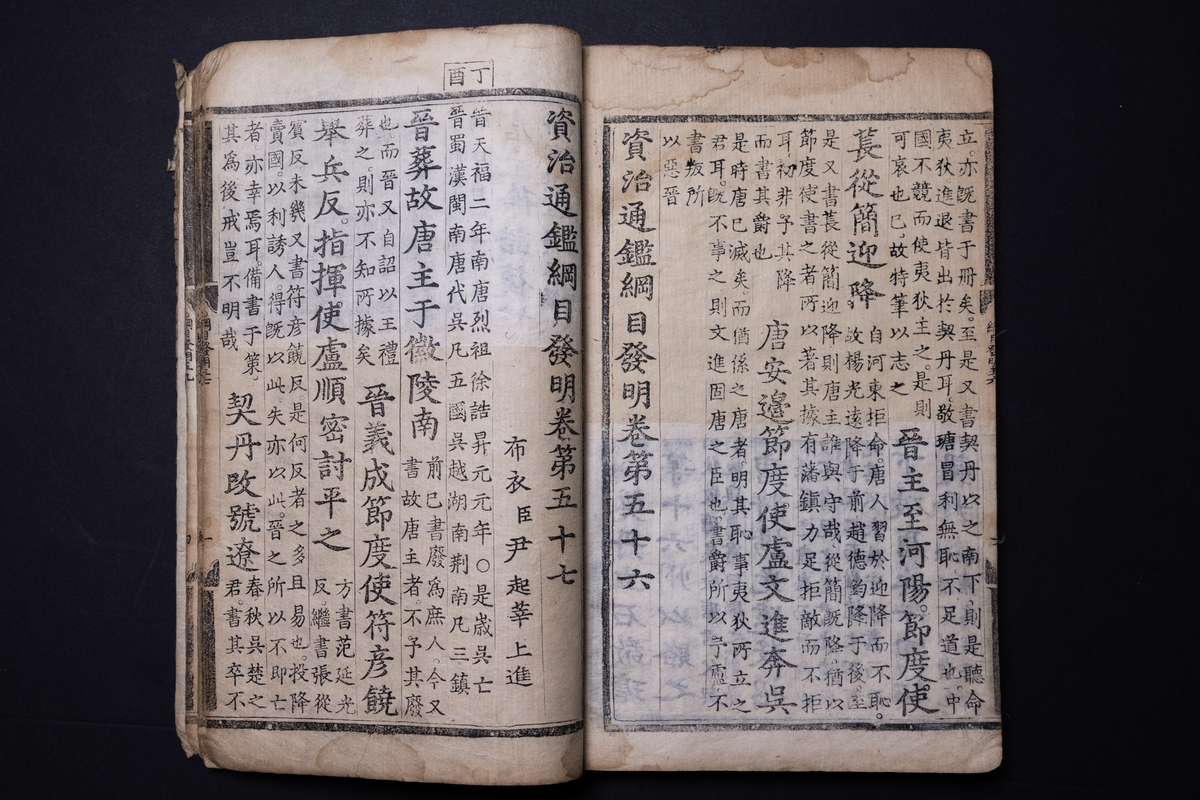 立亦旣書于册矣。至是又書契丹以之南下。則是聽命
夷狄進退皆出於契丹耳。敬瑭冒利無恥。不足道也。中
國不競而使夷狄主之。是則
可哀也已。故特筆以志之
晉主至河陽。節度使
萇從簡迎降。
自河東拒命。唐人習於迎降而不恥。
故楊光遠降于前趙德鈞降于後。至
是又書萇從簡迎降則唐主誰與守哉從簡旣降。猶以
節度使書之者所以著其據有藩鎭力足拒敵而不拒
耳初非予其降
而書其爵也
唐安邊節度使盧文進奔吳
是時唐已滅矣。而猶係之唐者。明其恥事夷狄所立之
君耳。旣不事之則文進固唐之臣也。書爵所以予盧不
書叛所
以惡晉
資治通鑑綱目發明卷第五十六
資治通鑑綱目發明卷第五十七
布衣臣尹起莘上進
丁酉
晉天福二年南唐烈祖徐誥昇元元年〇是歲吳亡
晉蜀漢閩南唐代吳凡五國吳越湖南荆南凡三鎭
晉葬故唐主于徽陵南
前已書廢爲庶人。今又
書故唐主者不予其廢
也而晉又自詔以王禮
葬之。則亦不知所據矣
晉義成節度使符彦饒
舉兵反。指揮使盧順密討平之
方書范延光
反。繼書張從
賓反未幾又書符彦饒反。是何反者之多且易也。投降
賣國。以利誘人。得旣以此。失亦以此。晉之所以不即亡
者。亦幸焉耳。備書于策。
其爲後戒豈不明哉
契丹改號遼
春秋吳楚之
君。書其卒不